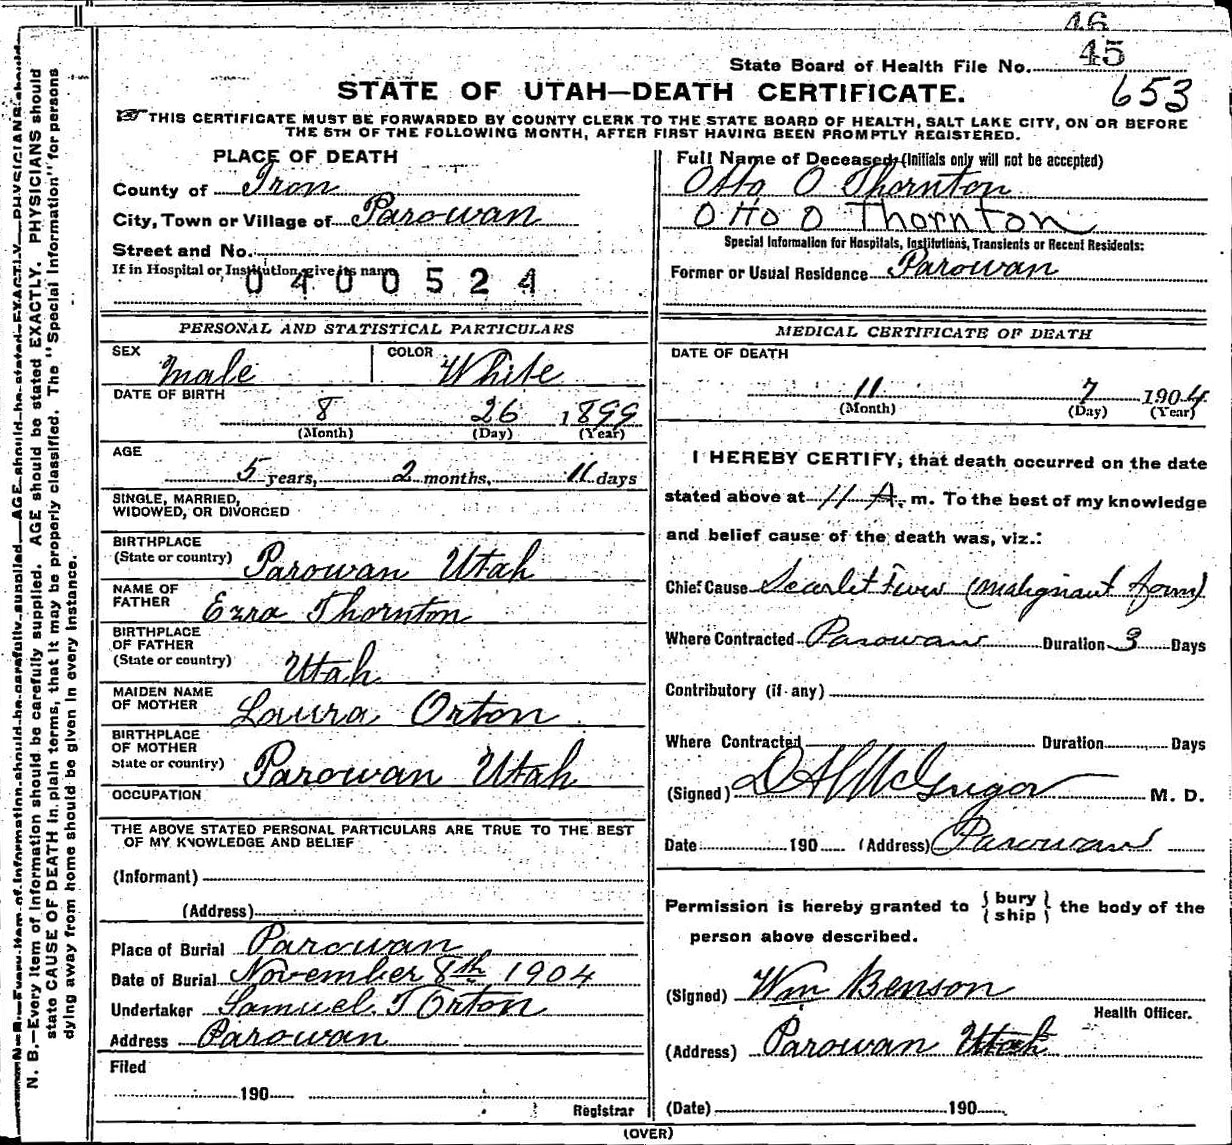 46
State Board of Health File No. 45
653
STATE OF UTAH—DEATH CERTIFICATE.
☞ THIS CERTIFICATE MUST BE FORWARDED BY COUNTY CLERK TO THE STATE BOARD OF HEALTH, SALT LAKE CITY, ON OR BEFORE
THE 5TH OF THE FOLLOWING MONTH, AFTER FIRST HAVING BEEN PROMPTLY REGISTERED.
PLACE OF DEATH
County of Iron
City, Town or Village of Parowan
Street and No.
If in Hospital or Institution, give its name
0400524
Full Name of Deceased, (Initials only will not be accepted)
Otto O Thornton
Otto O Thornton
Special Information for Hospitals, Institutions, Transients or Recent Residents:
Former or Usual Residence Parowan
PERSONAL AND STATISTICAL PARTICULARS
SEX Male COLOR White
DATE OF BIRTH
8 26 1899
(Month) (Day) (Year)
AGE
5 years, 2 months, 11 days
SINGLE, MARRIED,
WIDOWED, OR DIVORCED
BIRTHPLACE
(State or country) Parowan Utah
NAME OF
FATHER Ezra Thornton
BIRTHPLACE
OF FATHER
(State or country) Utah
MAIDEN NAME
OF MOTHER Laura Orton
BIRTHPLACE
OF MOTHER
State or country) Parowan Utah
OCCUPATION
THE ABOVE STATED PERSONAL PARTICULARS ARE TRUE TO THE BEST
OF MY KNOWLEDGE AND BELIEF
(Informant)
(Address)
Place of Burial Parowan
Date of Burial November 8th 1904
Undertaker Samuel T Orton
Address Parowan
Filed
190
Registrar
MEDICAL CERTIFICATE OF DEATH
DATE OF DEATH
11 7 1904
(Month) (Day) (Year)
I HEREBY CERTIFY, that death occurred on the date
stated above at 11 A. m. To the best of my knowledge
and belief cause of the death was, viz.:
Chief Cause Scarlet Fever (malignant form)
Where Contracted Parowan Duration 3 Days
Contributory (if any)
Where Contracted Duration Days
(Signed) D A McGregor M. D.
Date 190 (Address) Parowan
Permission is hereby granted to { bury } the body of the
{ ship }
person above described.
(Signed) Wm Benson
Health Officer.
(Address) Parowan Utah
(Date) 190
(OVER)
N. B.—Every item of information should be carefully supplied. AGE should be stated EXACTLY. PHYSICIANS should
N. B.—Every item of information should be carefully supplied. AGE should be stated EXACTLY. PHYSICIANS should
state CAUSE OF DEATH in plain terms, that it may be properly classified. The "Special Information" for persons
dying away from home should be given in every instance.